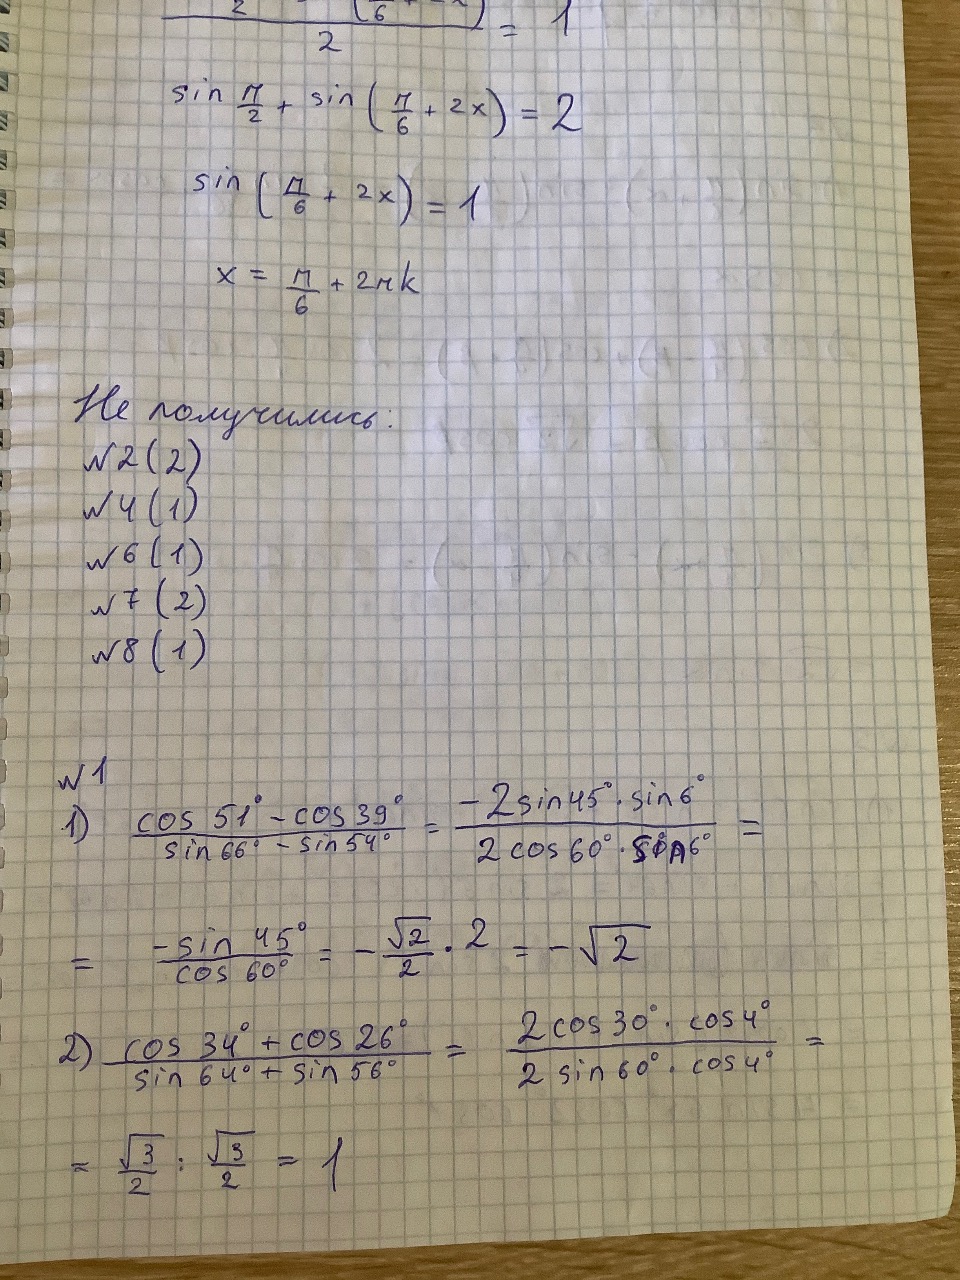 2 (π/6 + 2x) / 2 = 1
sin π/2 + sin (π/6 + 2x) = 2
sin (π/6 + 2x) = 1
x = π/6 + 2πk
Не получились:
№2 (2)
№4 (1)
№6 (1)
№7 (2)
№8 (1)
№1
1) (cos 51° - cos 39°) / (sin 66° - sin 54°) = (-2 sin 45° · sin 6°) / (2 cos 60° · sin 6°) =
= -sin 45° / cos 60° = - √2/2 · 2 = - √2
2) (cos 34° + cos 26°) / (sin 64° + sin 56°) = (2 cos 30° · cos 4°) / (2 sin 60° · cos 4°) =
= √3/2 : √3/2 = 1